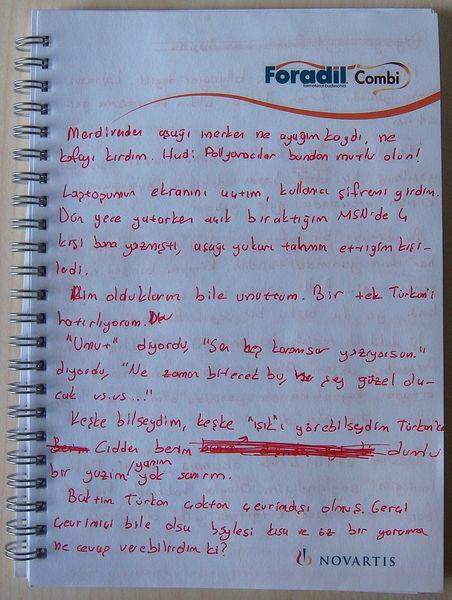 Foradil Combi
formoterol-budesonid
Merdivenden aşağı inerken ne ayağım kaydı, ne
kafayı kırdım. Hadi Pollyannacılar bundan mutlu olun!
Laptopumun ekranını açtım, kullanıcı şifremi girdim.
Dün gece yatarken açık bıraktığım MSN'de 4
kişi bana yazmıştı, aşağı yukarı tahmin ettiğim kişi-
lerdi.
Kim olduklarını bile unuttum. Bir tek Türkan'ı
hatırlıyorum.
"Umut" diyordu, "Sen hep karamsar yazıyorsun."
diyordu, "Ne zaman bitecek bu, şey güzel ola-
cak vs.vs..."
Keşke bilseydim, keşke "ışık"ı görebilseydim Türkan'
Cidden benim olumlu
bir yazım/yanım yok sanırım.
Baktım Türkan çoktan çevrimdışı olmuş. Gerçi
çevrimiçi bile olsa böylesi kısa ve öz bir yoruma
ne cevap verebilirdim ki?
NOVARTIS